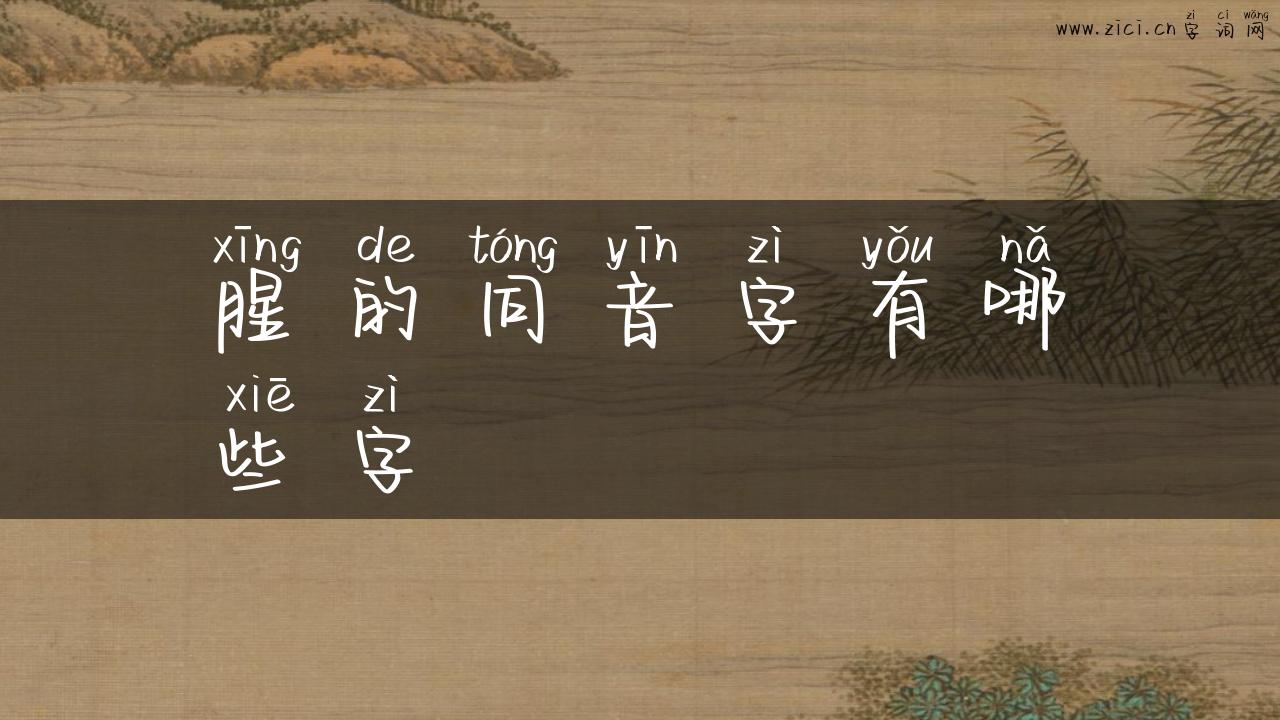 zì cí wǎng
www.zici.cn 字 词 网
xīng de tóng yīn zì yǒu nǎ
腥 的 同 音 字 有 哪
xiē zì
些 字